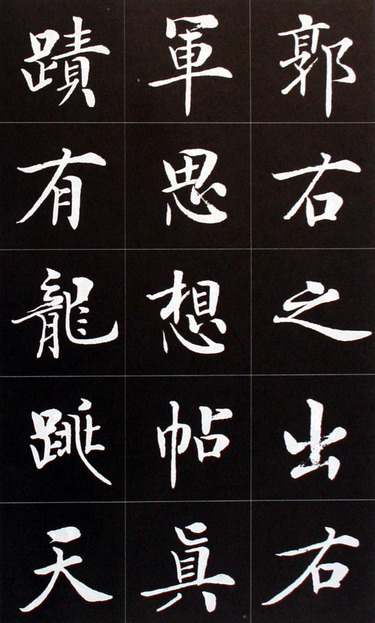 郭右之出右
軍思想帖眞
蹟有龍跳天